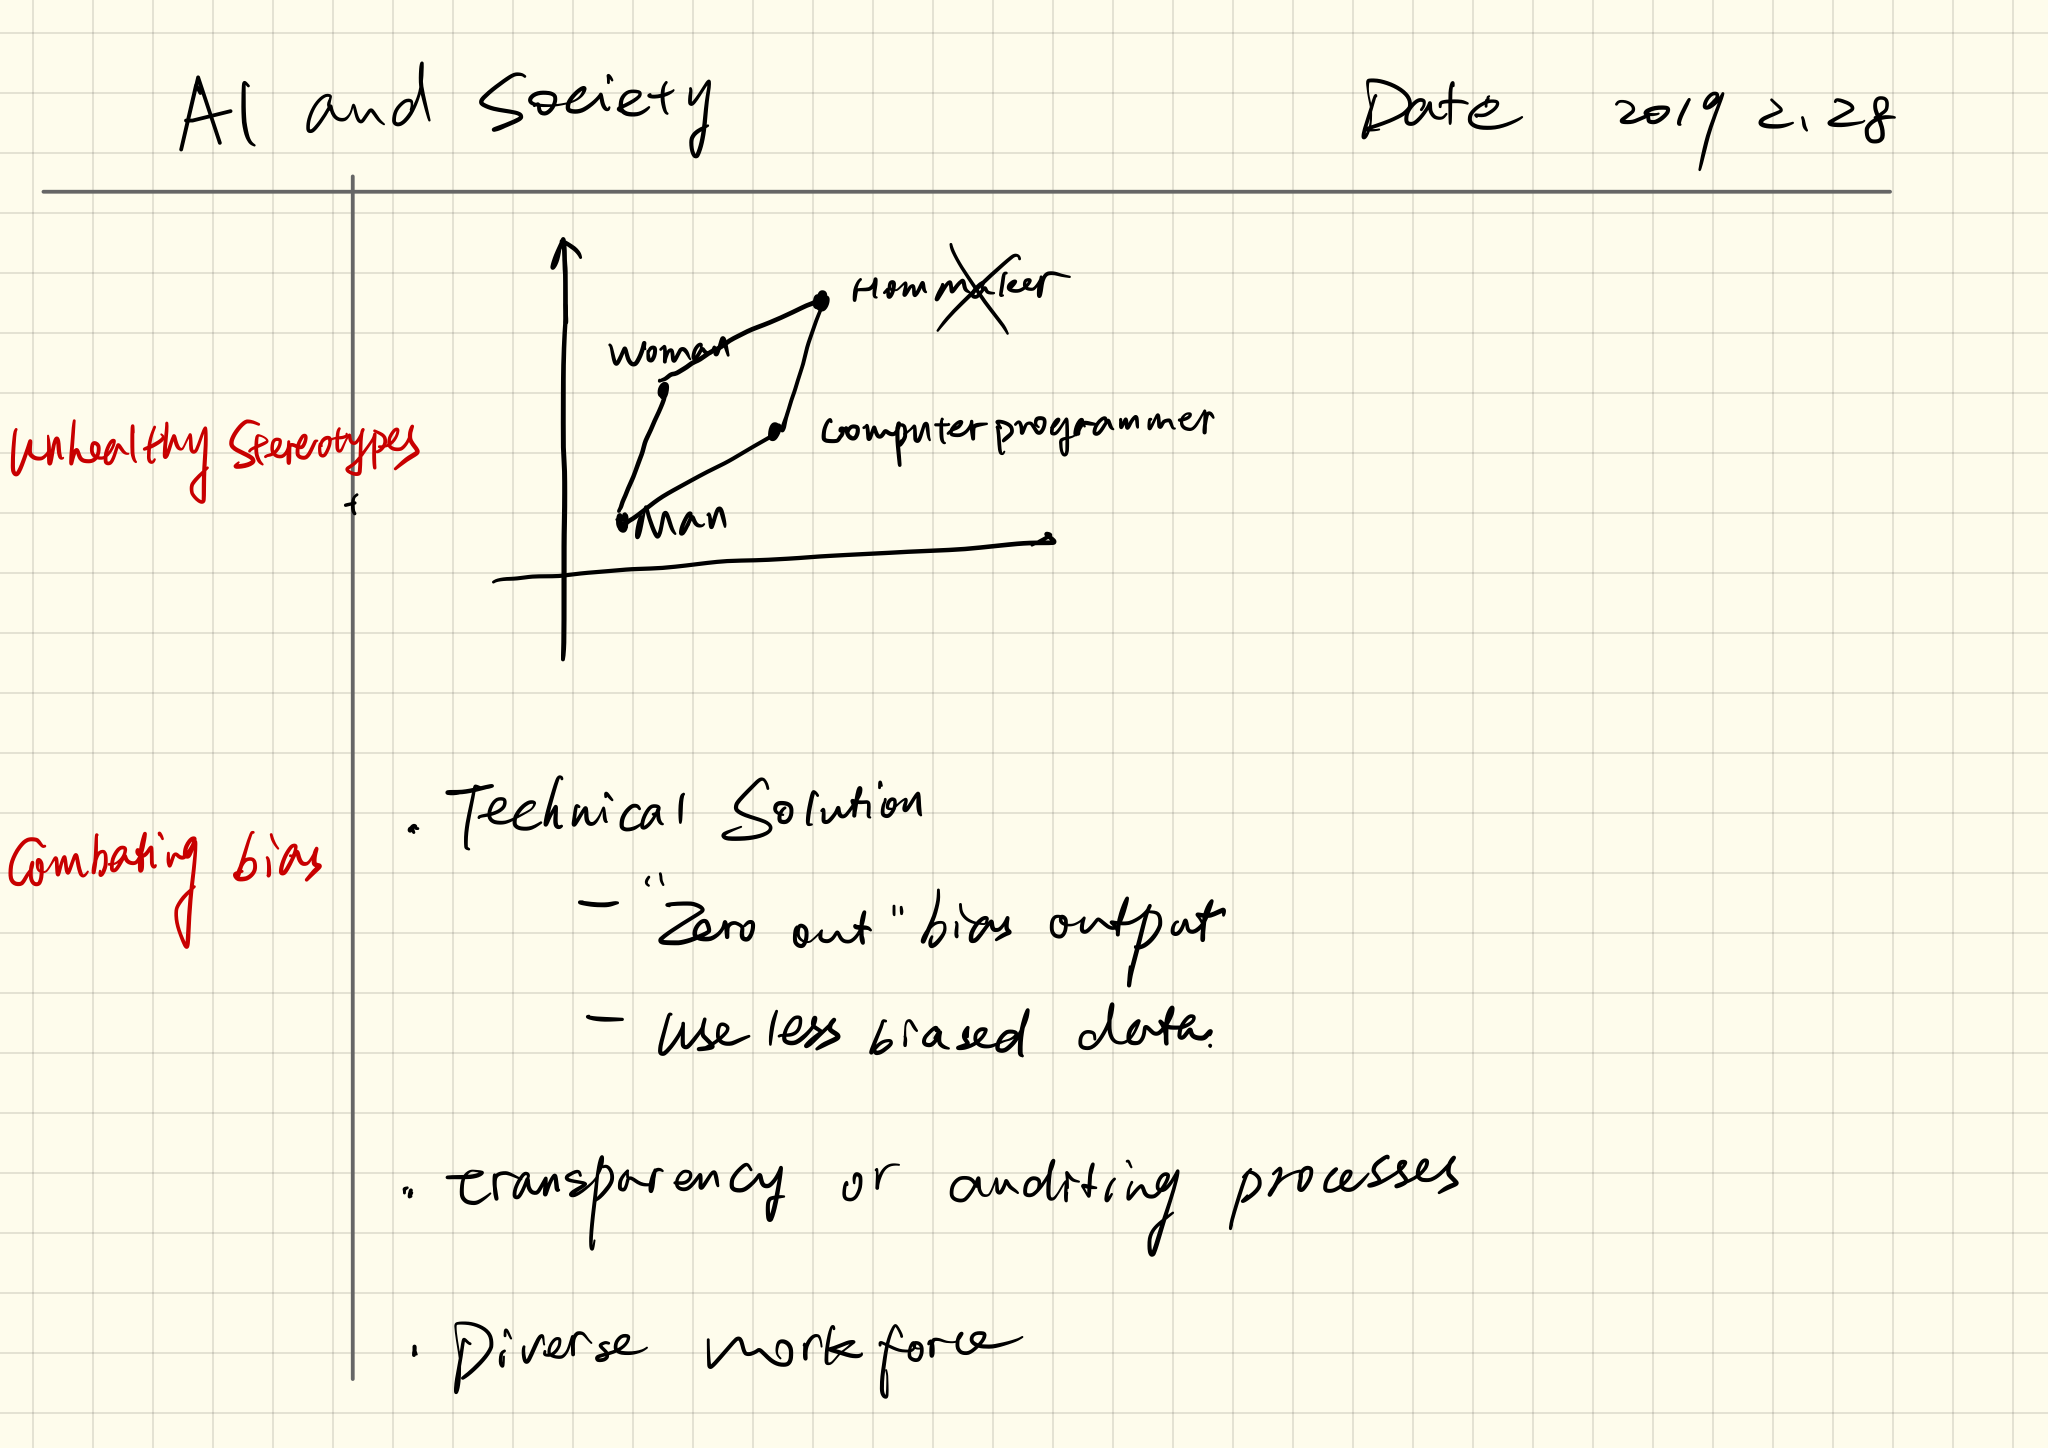 AI and Society
Date 2019 2.28
Unhealthy Stereotypes
Hommaker
Woman
computer programmer
Man
Combating bias
· Technical Solution
- "Zero out" bias output
- use less biased data.
· transparency or auditing processes
· Diverse workforce